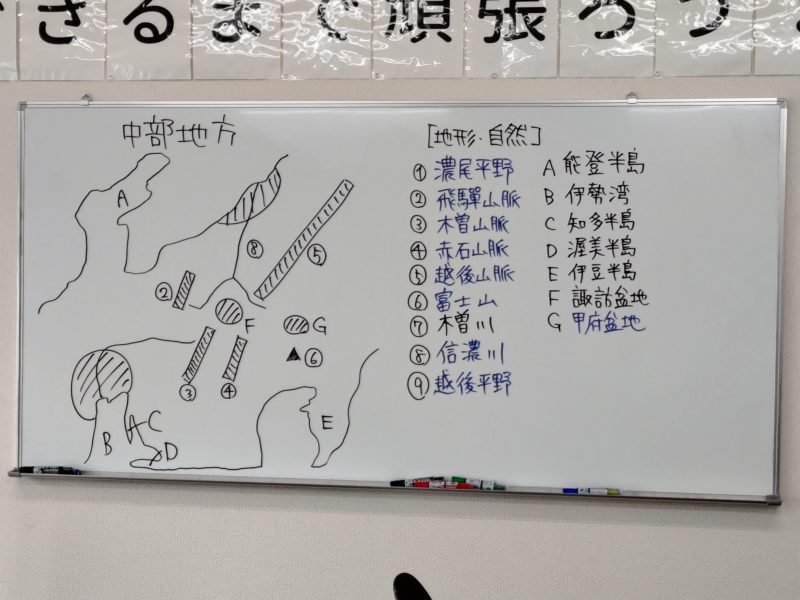 できるまで頑張ろう
中部地方
[地形・自然]
① 濃尾平野
② 飛騨山脈
③ 木曽山脈
④ 赤石山脈
⑤ 越後山脈
⑥ 富士山
⑦ 木曽川
⑧ 信濃川
⑨ 越後平野
A 能登半島
B 伊勢湾
C 知多半島
D 渥美半島
E 伊豆半島
F 諏訪盆地
G 甲府盆地
A
⑧
⑤
②
F
G
⑥
③
④
C
B
D
E